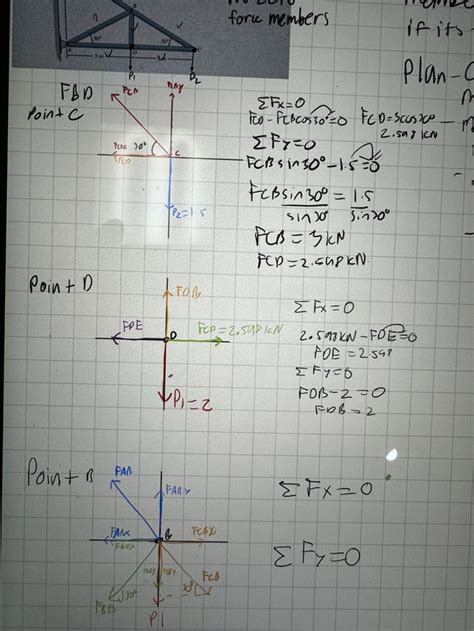 no zero
force members
if its
Plan -
30°
30°
P1
P2
FBD
Point C
FCB
FCBY
30°
FCD
C
P2=1.5
ΣFx=0
FCD - FCBcos30°=0
FCD=3cos30°
2.598 kN
ΣFy=0
FCBsin30° - 1.5 = 0
FCBsin30° = 1.5
sin30° sin30°
FCB = 3kN
FCD = 2.598 kN
Point D
FDB
FDE
D
FCD = 2.598 kN
P1 = 2
ΣFx=0
2.598 kN - FDE = 0
FDE = 2.598
ΣFy=0
FDB - 2 = 0
FDB = 2
Point B
FAB
FABY
FABX
B
FCBX
FEBX
FEB
30°
30°
FCB
P1
ΣFx=0
ΣFy=0